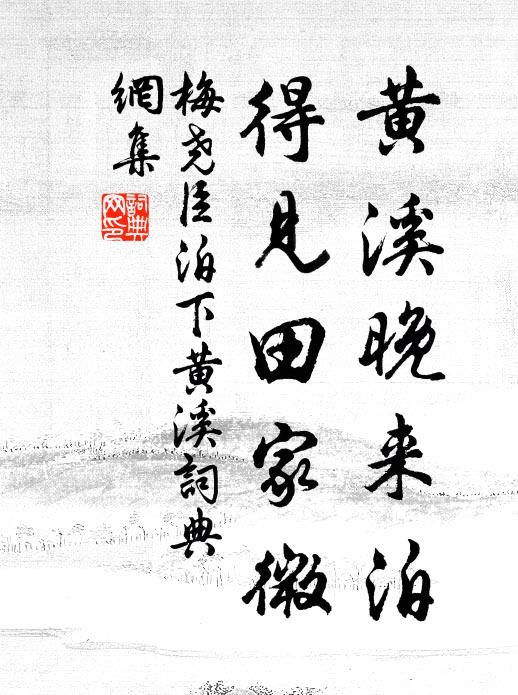 黄溪晚来泊
得见田家微
梅尧臣泊下黄溪詞典
網集
詞典
网印